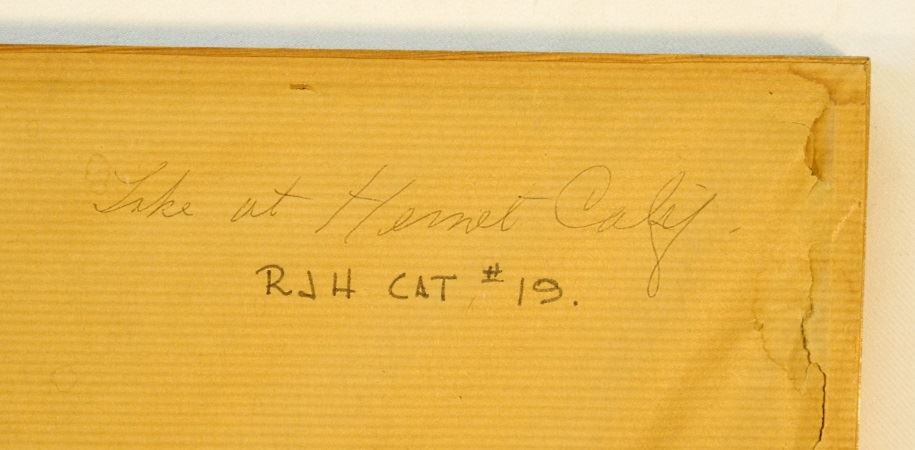 Lake at Hemet Calif.
RJH CAT #19.